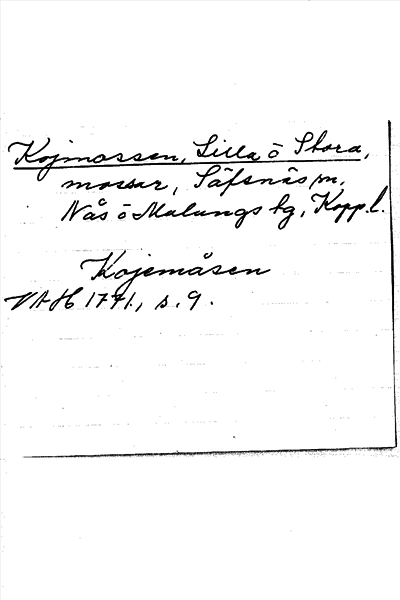 Kojmossen, Lilla o Stora,
mossar, Säfsnäs sn,
Nås o Malungs tg, Kopp.l.
Kojemåsen
VAH 1771, s. 9.